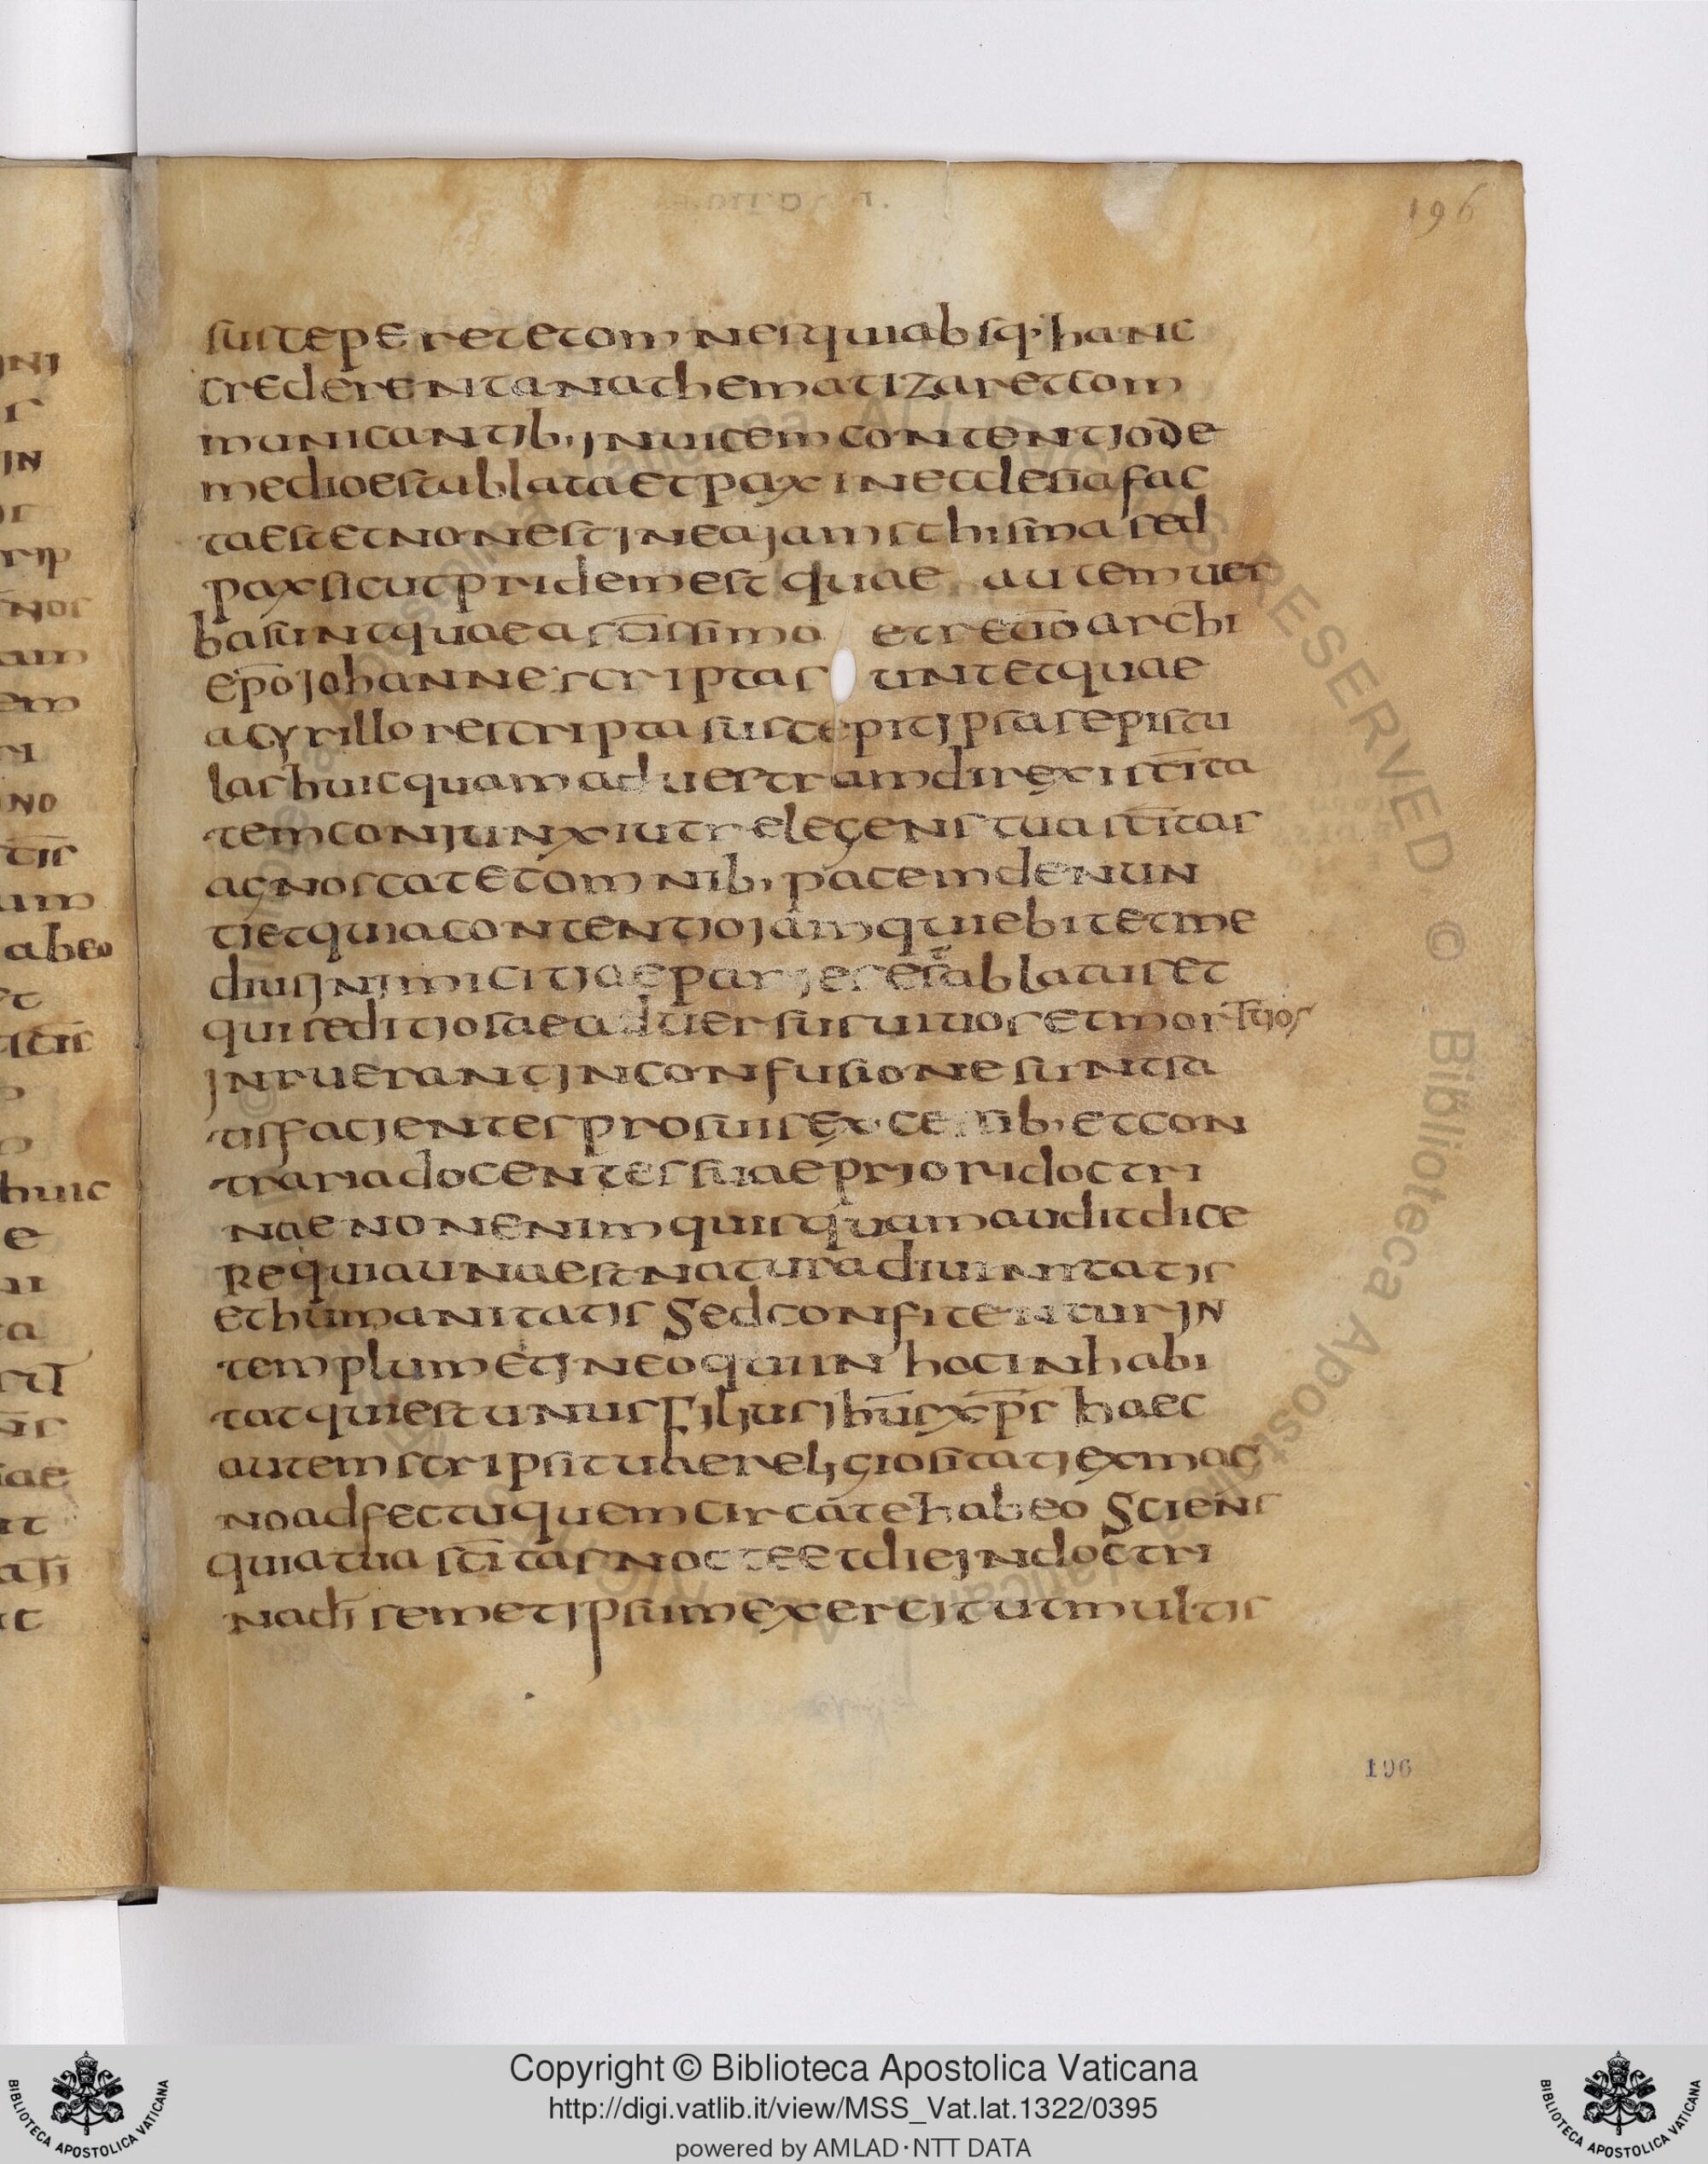 196
susceperet et omnes qui absq· hanc
crederent anathematizaret com
municantib, inuicem contentio de
medio est ablata et pax in ecclesia fac
ta est et non est in ea iam schisma sed
pax sicut pridem est quae autem uer
ba sint quae a sc̄issimo et reuēō archi
ep̄o iohanne scripta sunt et quae
a cyrillo rescripta suscepit ipsas epistu
las huic quam ad uestram direxi sc̄ita
tem coniunxi ut relegens tua sc̄itas
agnoscat et omnib, pacem denun
tiet quia contentio iam quiebit et me
dius inimicitiae paries est ablatus et
qui seditiosae aduersus uiuos et mortuos
inruerant in confusione sunt sa
tisfacientes pro suis excessib, et con
traria docentes suae priori doctri
nae non enim quisquam audit dice
re quia una est natura diuinitatis
et humanitatis Sed confitentur in
templum et in eo qui in hoc inhabi
tat qui est unus filius ih̄us xp̄s haec
autem scripsi tuae religiositati ex mag
no adfectu quem circa te habeo Sciens
quia tua sc̄itas nocte et die in doctri
na d̄i semetipsum exercit ut multis
196
Copyright © Biblioteca Apostolica Vaticana
http://digi.vatlib.it/view/MSS_Vat.lat.1322/0395
powered by AMLAD·NTT DATA
BIBLIOTECA APOSTOLICA VATICANA
BIBLIOTECA APOSTOLICA VATICANA